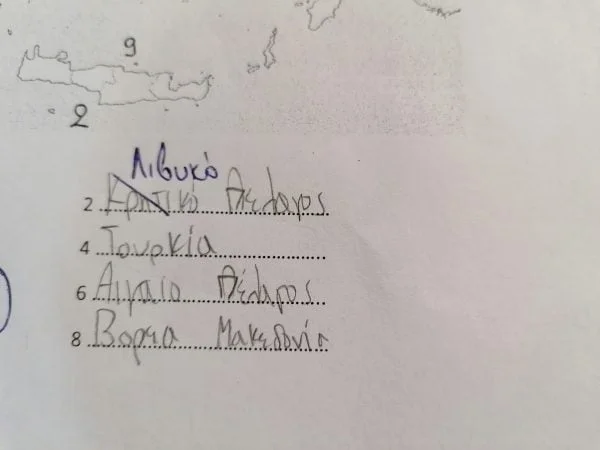 9
2
Λιβυκό
2 Κρητικό Πέλαγος
4 Τουρκία
6 Αιγαίο Πέλαγος
8 Βορεια Μακεδονία